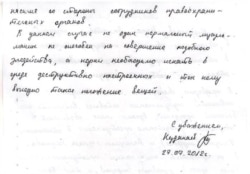 насилия со стороны сотрудников правоохрани-
тельных органов.
К данном случае не один нормальный мусуль-
манин не способен на совершение подобного
злодейства, а корни необходимо искать в
среде деструктивно настроенных и тех кому
выгодно такое положение вещей.
С уважением,
27.07.2012г.